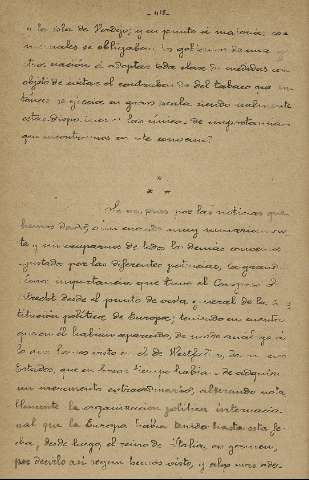 - 418 -
" la isla de Perdejo; y en punto a marina, co
se obligaban los gobiernos de una y
otra nación á adoptar toda clase de medidas con
objeto de evitar el contrabando del tabaco que en-
tonces se hacia en gran escala siendo realmente
estas disposiciones las únicas de importancia
que encontramos en este convenio."
* * *
Se comprende por las noticias que
hemos dado, aún cuando muy sumariamen-
te y sin ocuparnos de todos los demas convenios
ajustados por las diferentes potencias, la grandí-
sima importancia que tuvo el Congreso de
Utrecht desde el punto de vista general de la
política de Europa; teniendo en cuenta
que en él habian aparecido, de modo igual que á
lo que hemos visto en el de Westfalia, nuevos
Estados, que en breve tiempo habian de adquirir
un incremento extraordinario, alterando nota-
blemente la organización politica internacio-
nal que la Europa habia tenido hasta esta fe-
cha; desde luego, el reino de Italia, en germen,
por decirlo asi segun hemos visto, y algo mas ade-